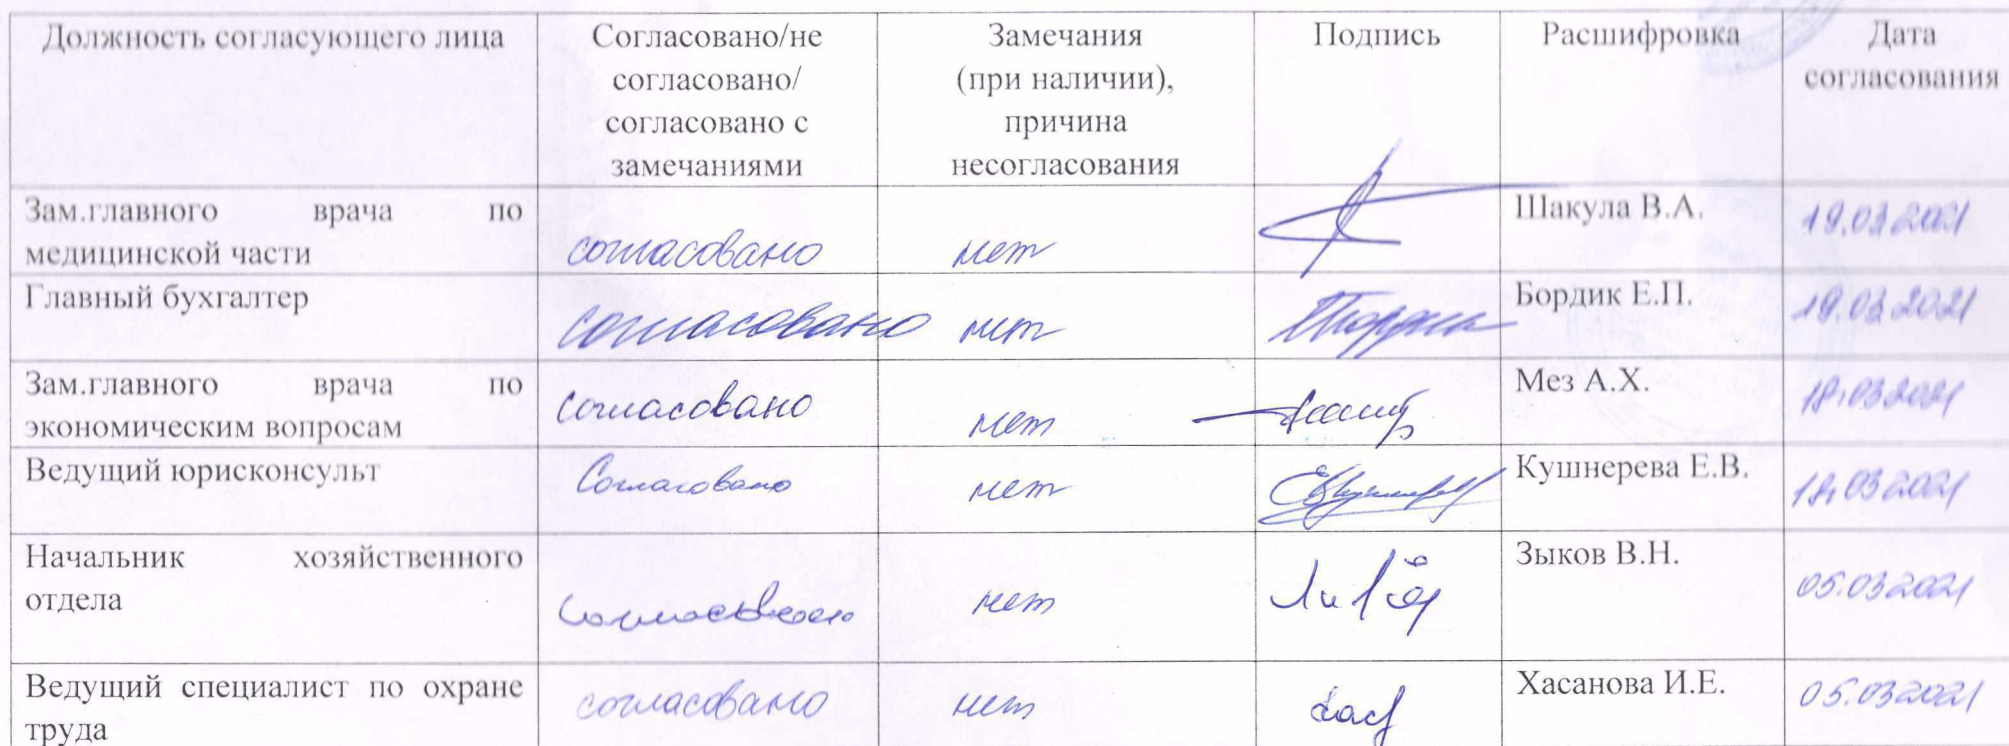 Должность согласующего лица
Согласовано/не
согласовано/
согласовано с
замечаниями
Замечания
(при наличии),
причина
несогласования
Подпись
Расшифровка
Дата
согласования
Зам.главного врача по
медицинской части
согласовано
нет
Шакула В.А.
19.03.2021
Главный бухгалтер
согласовано
нет
Бордик Е.П.
19.03.2021
Зам.главного врача по
экономическим вопросам
согласовано
нет
Мез А.Х.
18.03.2021
Ведущий юрисконсульт
Согласовано
нет
Кушнерева Е.В.
18.03.2021
Начальник хозяйственного
отдела
согласовано
нет
Зыков В.Н.
05.03.2021
Ведущий специалист по охране
труда
согласовано
нет
Хасанова И.Е.
05.03.2021